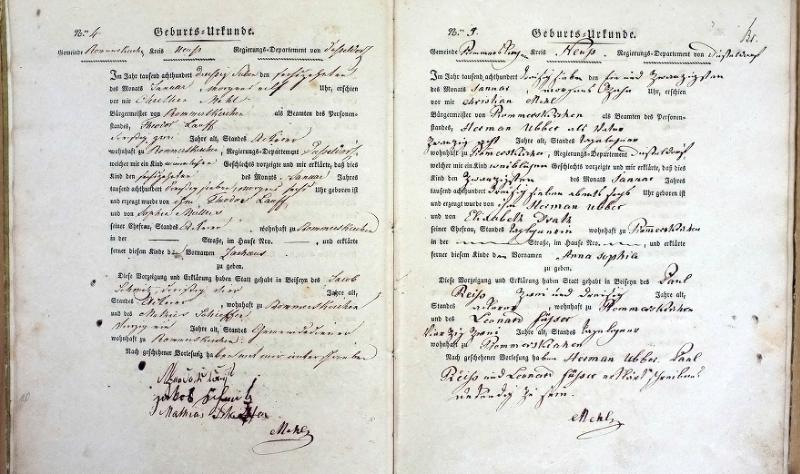 Nro. 4
Geburts-Urkunde.
Gemeinde Rommerskirchen Kreis Neuss Regierungs-Departement von Düsseldorf
Im Jahr tausend achthundert dreißig sieben den sechszehnten
des Monats Januar, morgens Uhr, erschien
vor mir Christian Mehl
Bürgermeister von Rommerskirchen als Beamten des Personen-
standes, Theodor Lauff
dreißig zwei Jahr alt, Standes Ackerer
wohnhaft zu Rommerskirchen, Regierungs-Departement Düsseldorf,
welcher mir ein Kind männlichen Geschlechts vorzeigte und mir erklärte, daß dies
Kind den sechszehnten des Monats Januar Jahres
tausend achthundert dreißig sieben, morgens sechs Uhr geboren ist
und erzeugt wurde von ihm Theodor Lauff
und von Sophia
seiner Ehefrau, Standes Ackerer, wohnhaft zu Rommerskirchen
in der Straße, im Hause Nro. und erklärte
ferner diesem Kinde den Vornamen
zu geben.
Diese Vorzeigung und Erklärung haben Statt gehabt in Beiseyn des Jacob
dreißig vier Jahre alt,
Standes Ackerer, wohnhaft zu Rommerskirchen
und des Mathias
vierzig ein Jahre alt, Standes Gemeindediener
wohnhaft zu Rommerskirchen.
Nach geschehener Vorlesung haben mit mir unterschrieben
Jakob
Mathias
Mehl
Nro. 5.
Geburts-Urkunde.
Gemeinde Rommerskirchen Kreis Neuss, Regierungs-Departement von Düsseldorf
Im Jahr tausend achthundert dreißig sieben den ein und zwanzigsten
des Monats Januar, morgens zehn Uhr, erschien
vor mir Christian Mehl
Bürgermeister von Rommerskirchen als Beamten des Personen-
standes, Herman Ubber als Vater
zwanzig acht Jahr alt, Standes Taglöhner
wohnhaft zu Rommerskirchen, Regierungs-Departement Düsseldorf,
welcher mir ein Kind weiblichen Geschlechts vorzeigte und mir erklärte, daß dies
Kind den zwanzigsten des Monats Januar Jahres
tausend achthundert dreißig sieben abends sechs Uhr geboren ist
und erzeugt wurde von ihm Herman Ubber
und von Elisabeth
seiner Ehefrau, Standes Taglöhnerin wohnhaft zu Rommerskirchen
in der Straße, im Hause Nro. und erklärte
ferner diesem Kinde den Vornamen Anna Sophia
zu geben.
Diese Vorzeigung und Erklärung haben Statt gehabt in Beiseyn des Paul
Reiss zwei und dreißig Jahre alt,
Standes Ackerer, wohnhaft zu Rommerskirchen
und des Leonard
vierzig zwei Jahr alt, Standes Taglöhner
wohnhaft zu Rommerskirchen
Nach geschehener Vorlesung haben Herman Ubber, Paul
Reiss und Leonard erklärt schreibens
unkundig zu sein.
Mehl